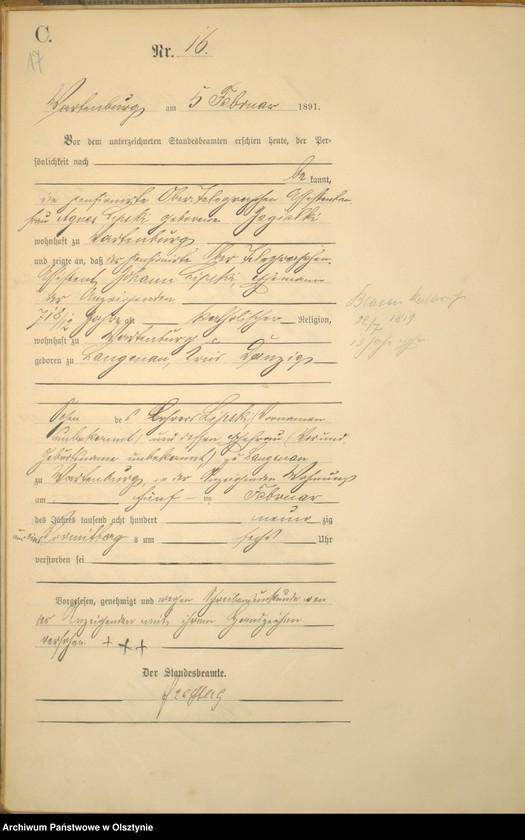 C.
17
Nr. 16.
Wartenburg am 5 Februar 1891.
Vor dem unterzeichneten Standesbeamten erschien heute, der Per-
sönlichkeit nach
be kannt,
die pensionirte Ober-Telegraphen Assistenten
frau Agnes Lipski geborene
wohnhaft zu Wartenburg
und zeigte an, daß der pensionirte Ober Telegraphen-
Assistent Johann Lipski, Ehemann
der Anzeigenden
71 8/12 Jahre alt katholischer Religion,
wohnhaft zu Wartenburg
geboren zu Langenau, Kreis Danzig
Sohn des Lehrers Lipski (Vornamen
unbekannt) und dessen Ehefrau (Vor und
Geburtsname unbekannt) zu Langenau
zu Wartenburg, in der Anzeigenden Wohnung
am fünf ten Februar
des Jahres tausend acht hundert neun zig
und eins Vormittag s um sechs Uhr
verstorben sei
Vorgelesen, genehmigt und wegen Schreibensunkunde von
der Anzeigenden mit ihrem Handzeichen
versehen. + + +
Der Standesbeamte.
1819
18 Jahr
Archiwum Państwowe w Olsztynie